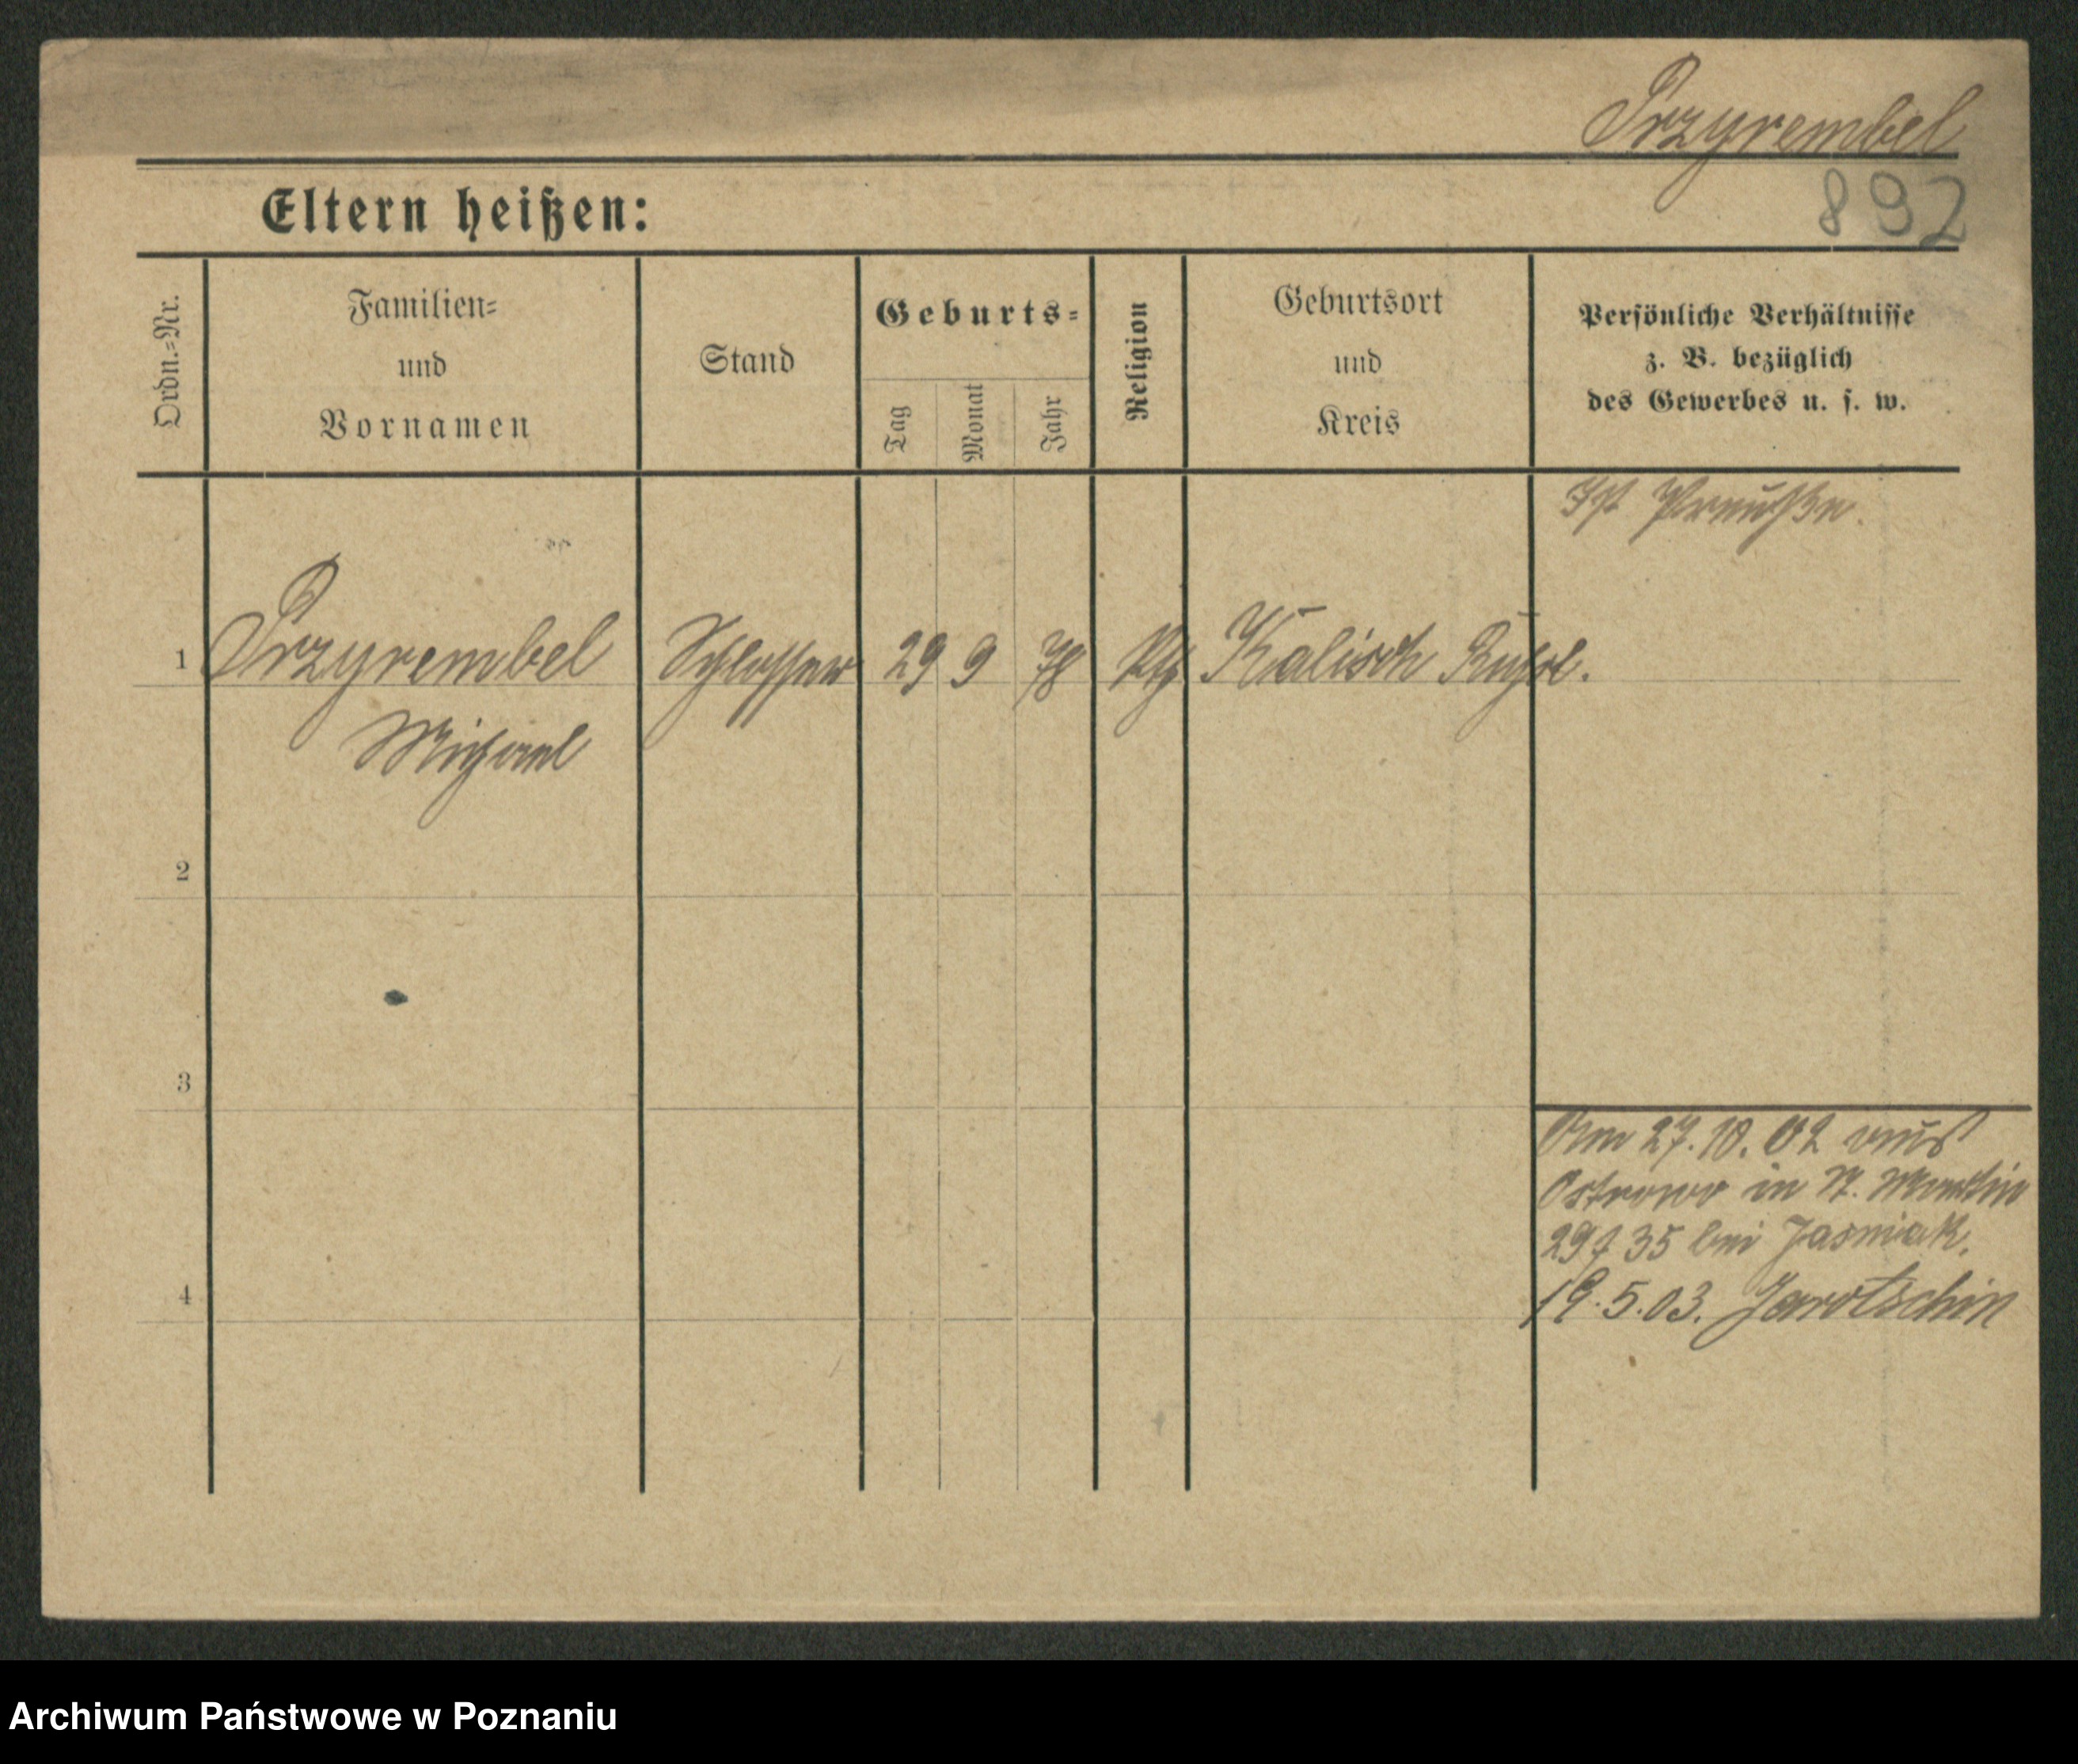 Przyrembel
892
Eltern heißen:
Ordn.=Nr.
Familien=
und
Vornamen
Stand
Geburts=
Tag
Monat
Jahr
Religion
Geburtsort
und
Kreis
Persönliche Verhältnisse
z. B. bezüglich
des Gewerbes u. s. w.
Ist Preuße.
1 Przyrembel Schlosser 29 9 78 kth Kalisch Rußl.
Michael
2
3
Am 27.10.02 aus
Ostrowo in St. Martin
29 35 bei Jasniak.
4
19.5.03. Jarotschin
Archiwum Państwowe w Poznaniu